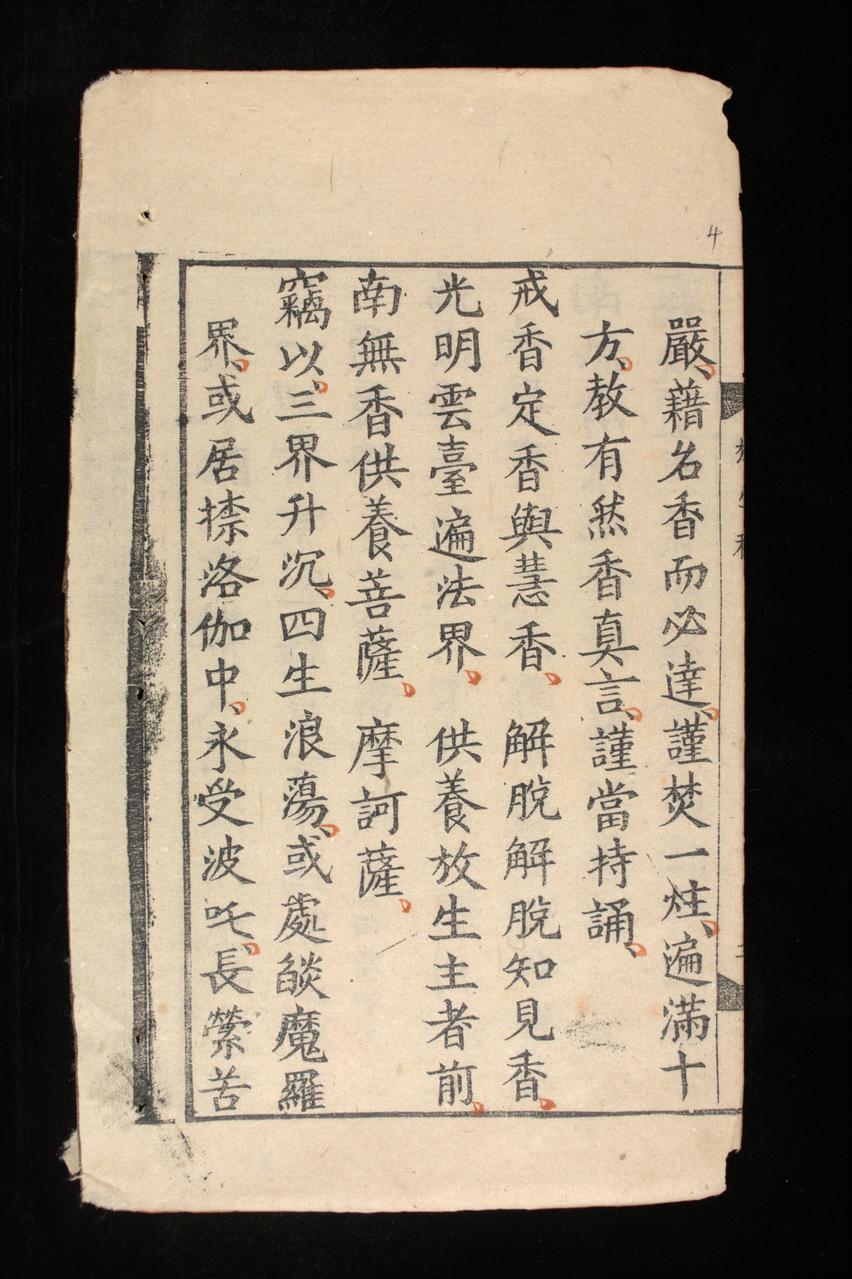 4
嚴、藉名香而必達、謹焚一炷、遍滿十
方、教有然香真言、謹當持誦、
戒香定香與慧香、解脫解脫知見香、
光明雲臺遍法界、供養放生主者前、
南無香供養菩薩、摩訶薩、
竊以、三界升沉、四生浪蕩、或處燄魔羅
界、或居捺洛伽中、永受波吒、長縈苦